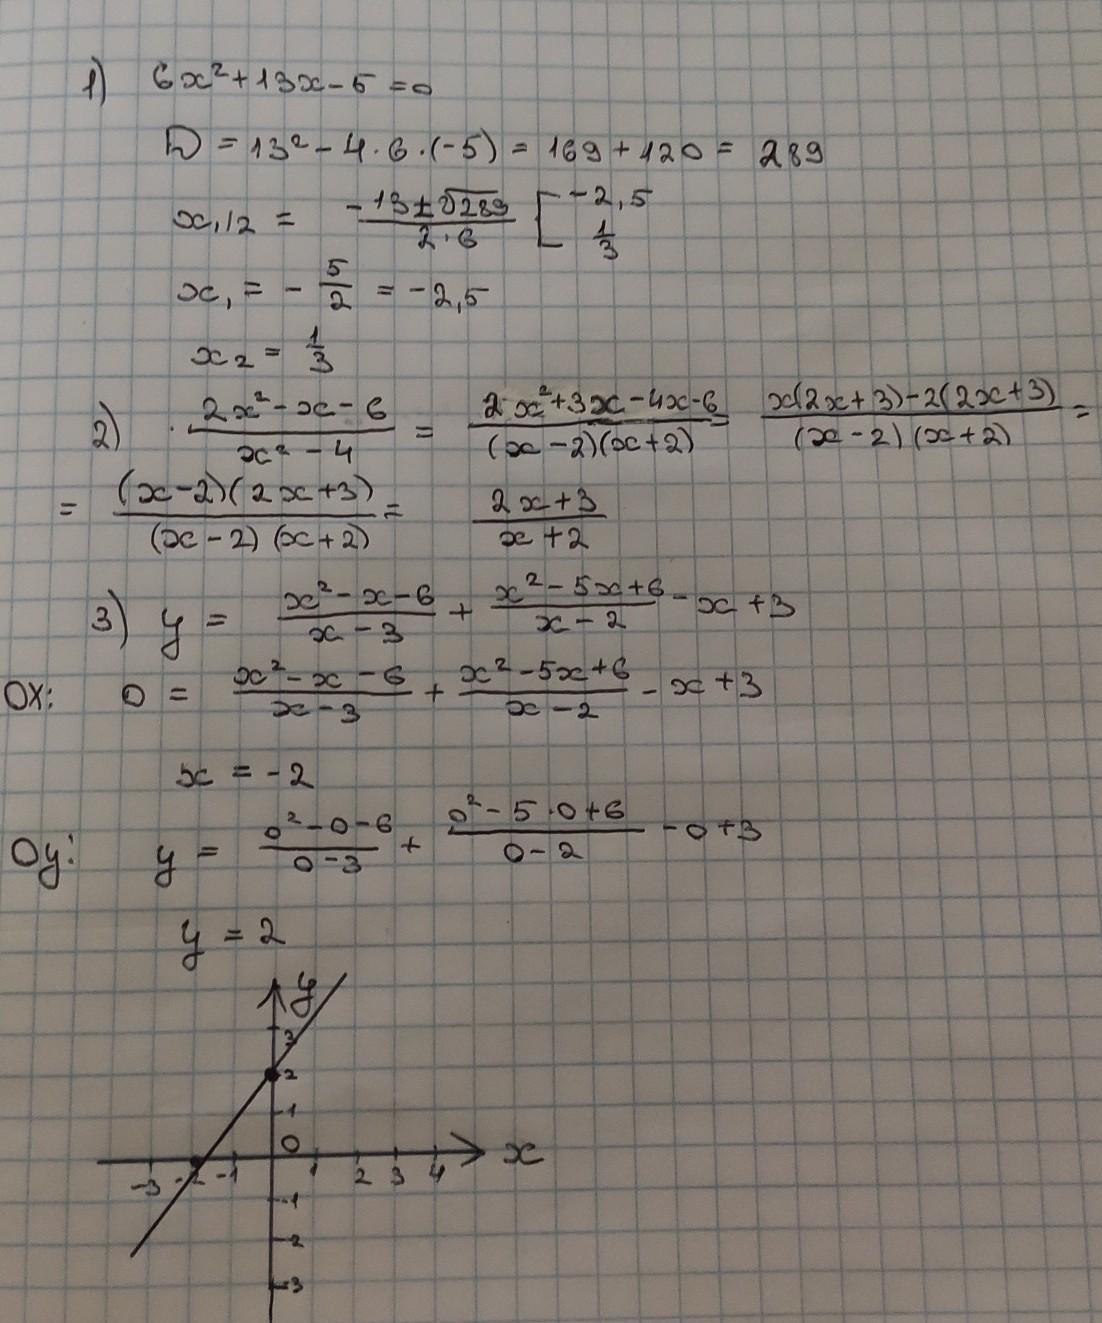 1) 6x²+13x-5=0
D = 13² - 4·6·(-5) = 169+120 = 289
x₁/₂ = (-13±√289)/(2·6) [ -2,5 ; 1/3
x₁ = -5/2 = -2,5
x₂ = 1/3
2) · (2x²-x-6)/(x²-4) = (2x²+3x-4x-6)/((x-2)(x+2)) = (x(2x+3)-2(2x+3))/((x-2)(x+2)) =
= ((x-2)(2x+3))/((x-2)(x+2)) = (2x+3)/(x+2)
3) y = (x²-x-6)/(x-3) + (x²-5x+6)/(x-2) - x+3
OX: 0 = (x²-x-6)/(x-3) + (x²-5x+6)/(x-2) - x+3
x = -2
Oy: y = (0²-0-6)/(0-3) + (0²-5·0+6)/(0-2) - 0+3
y = 2
y
3
2
1
0
-3 -2 -1 1 2 3 4 x
-1
-2
-3